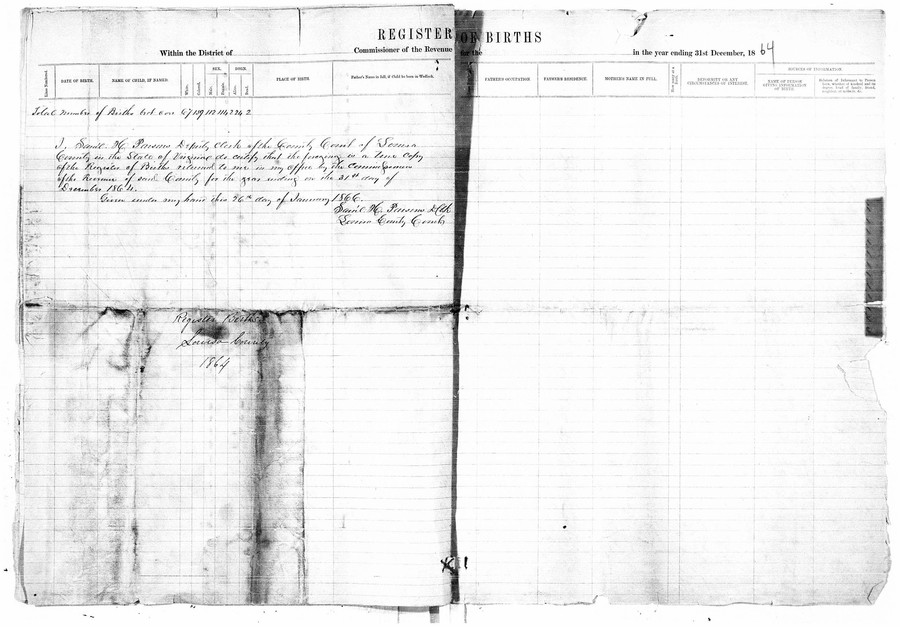 REGISTER OF BIRTHS
Within the District of
Commissioner of the Revenue for the
in the year ending 31st December, 1864
SOURCES OF INFORMATION.
SEX.
DATE OF BIRTH.
NAME OF CHILD, IF NAMED.
White.
Colored.
Male.
Female.
Alive.
Dead.
PLACE OF BIRTH.
Father's Name in full, if Child be born in Wedlock.
FATHER'S OCCUPATION.
FATHER'S RESIDENCE.
MOTHER'S NAME IN FULL.
DEFORMITY OR ANY
CIRCUMSTANCES OF INTEREST.
NAME OF PERSON
GIVING INFORMATION
OF BIRTH.
Total number of Births
I, Saml. H. Parsons Deputy Clerk of the County Court of Louisa
County in the State of Virginia do certify that the foregoing is a true Copy
of the Register of Births returned to me in my office by the Commissioner
of the Revenue of said County for the year ending on the 31st day of
December 1864.
Given under my hand this 26th day of January 1866.
Saml. H. Parsons D Clk
Louisa County Court
Register Births
Louisa County
1864